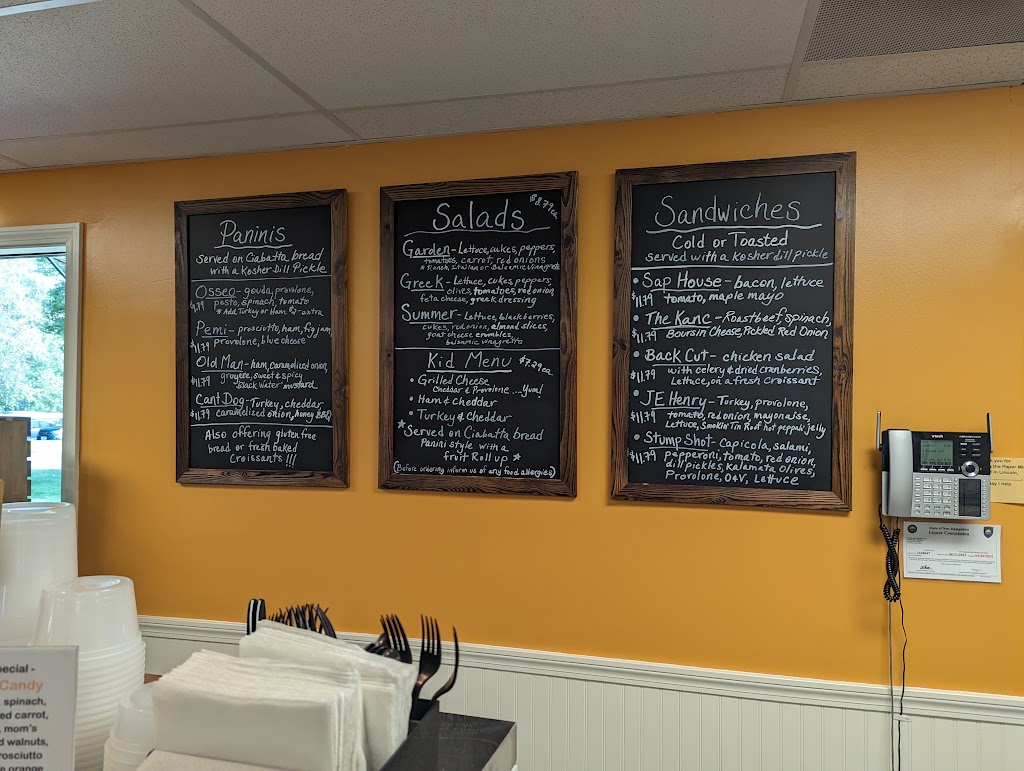 Paninis
Served on Ciabatta bread
with a Kosher Dill Pickle
Osseo - gouda, provolone,
pesto, spinach, tomato
* Add Turkey or Ham, $2- extra
Pemi - prosciutto, ham, fig jam,
$11.79 provolone, blue cheese
Old Man - ham, caramelized onion,
gruyere, sweet & spicy
$11.79 black water mustard
Cant Dog - Turkey, cheddar
$11.79 caramelized onion, honey BBQ
Also offering gluten free
bread or fresh baked
Croissants !!!
Salads $8.79 ea.
Garden - Lettuce, cukes, peppers,
tomatoes, carrot, red onions
* Ranch, Italian or Balsamic Vinaigrette
Greek - Lettuce, cukes, peppers,
olives, tomatoes, red onion
feta cheese, greek dressing
Summer - Lettuce, blackberries,
cukes, red onion, almond slices,
goat cheese crumbles,
balsamic vinagrette
Kid Menu $7.29 ea.
• Grilled Cheese
Cheddar & Provolone ...Yum!
• Ham & Cheddar
• Turkey & Cheddar
* Served on Ciabatta bread
Panini style with a
fruit Roll up *
(Before ordering inform us of any food allergies)
Sandwiches
Cold or Toasted
served with a Kosher dill pickle
• Sap House - bacon, lettuce
$11.79 tomato, maple mayo
• The Kanc - Roastbeef, spinach,
$11.79 Boursin Cheese, Pickled Red Onion
• Back Cut - chicken salad
$11.79 with celery & dried cranberries,
Lettuce, on a fresh croissant
• JE Henry - Turkey, provolone,
$11.79 tomato, red onion, mayonaise,
Lettuce, Smokin' Tin Roof hot pepper jelly
• Stump Shot - Capicola, salami,
$11.79 Papperoni, tomato, red onion,
dill pickles, kalamata olives,
Provolone, O&V, Lettuce
vtech
you for
the Paper Mi
in Lincoln,
help
State of New Hampshire
Liquor Commission
ecial -
Candy
, spinach,
ed carrot,
, mom's
d walnuts,
rosciutto
e orange